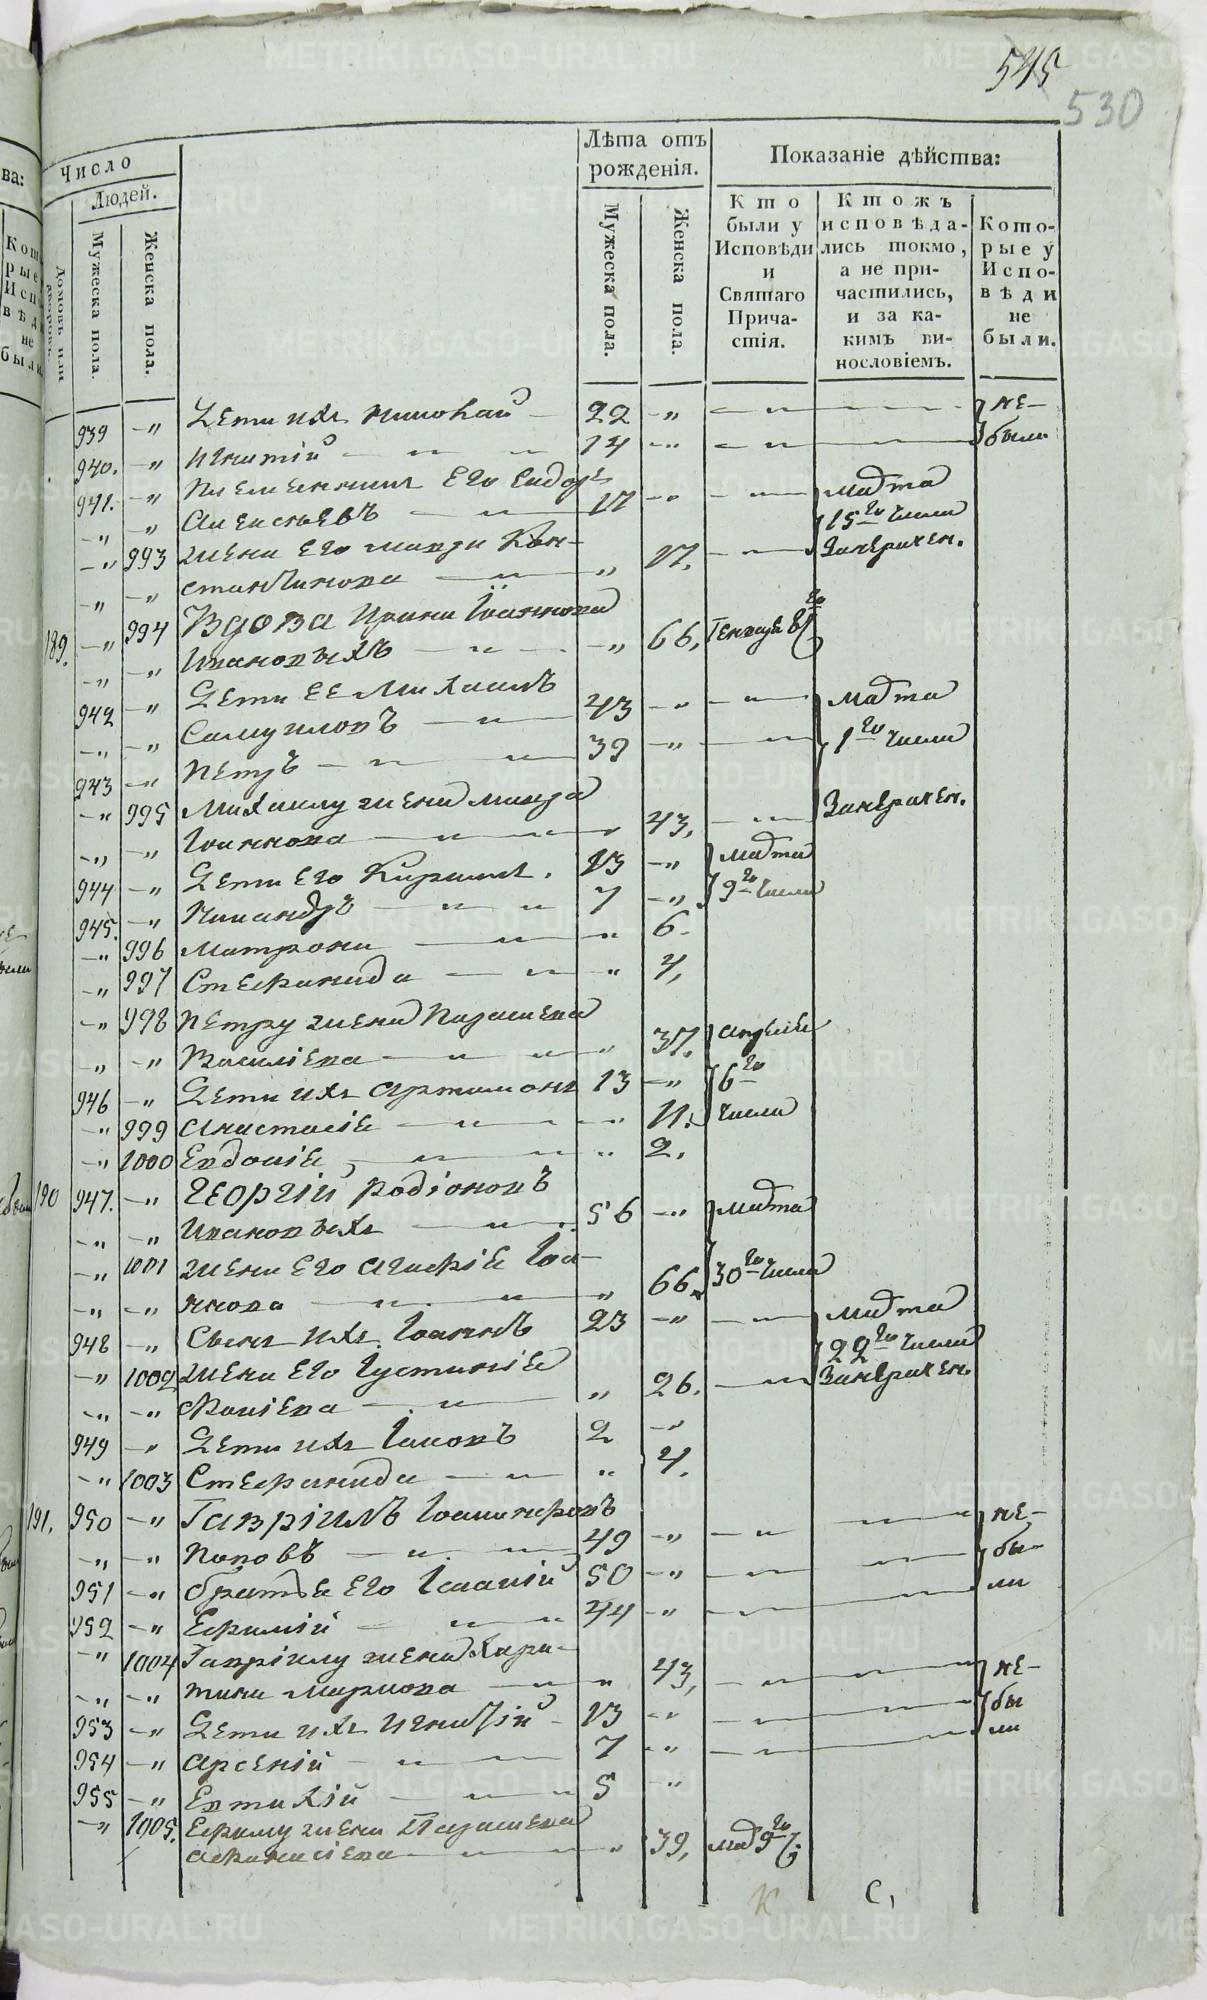 545
530
Число
Людей.
Домовъ или дворовъ.
Мужеска пола.
Женска пола.
Лѣта отъ рожденія.
Мужеска пола.
Женска пола.
Показаніе дѣйства:
Кто были у Исповѣди и Святаго Причастія.
Ктожъ исповѣдались токмо, а не причастились, и за какимъ винословіемъ.
Которые у Исповѣди не были.
939 -„ Дети ихъ Николай 22 -„ не-
940. -„ Игнатій 14 -„ были
941. -„ Племянникъ Его Сидоръ марта
„ „ Алексѣевъ 17 -„ 15го числа
-„ 993 жена Его Марѳа Кон- 17.
„ „ стантинова „
189. -„ 994 Вдова Ирина Іоаннова 66, Генваря 8го
-„ -„ Ивановыхъ -„
942 -„ Дети ЕЕ Михаилъ 43 -„ марта
-„ -„ Самуиловъ 1го числа
943 -„ Петръ 39 -„
-„ 995 Михаилу жена Марѳа 43,
-„ -„ Іоаннова
944 -„ Дети Его Кирилъ. 13 -„ марта
945. -„ Никандръ 7 -„ 9го числа
-„ 996 Матрона „ 6.
-„ 997 Стефанида „ 4,
-„ 998 Петру жена Параскева 37. апреля
-„ -„ Василіева „ 6го
946 -„ Дети ихъ Артамонъ 13 -„ числа
-„ 999 Анастасія „ 11.
-„ 1000 Евдокія „ 2,
190 947. -„ Георгій Родіоновъ 56 -„ марта
-„ -„ Ивановыхъ
-„ 1001 жена Его Агафія Іоа- 66 30го числа
-„ -„ ннова „
948 -„ Сынъ ихъ Іоаннъ 23 -„ марта
-„ 1002 жена Его Іустинія 26. 22го числа
-„ -„ „
949 -„ Дети ихъ Іаковъ 2 -„
-„ 1003 Стефанида „ 4.
191. 950 -„ Гавріилъ Іоанникіевъ не-
„ -„ Поповъ 49 -„ бы-
951 -„ братья Его 50 -„ ли
952 -„ Ефимій 44 -„
-„ 1004 Гавріилу жена Хари- 43, не-
-„ -„ тина Маркова „ бы
953 -„ Дети ихъ Игнатій 13 „ ли
954 -„ Арсеній 7 „
955 -„ Евтихій 5 -„
-„ 1005. Ефиму жена Параскева 39,
Афанасіева „
К С,
METRIKI.GASO-URAL.RU